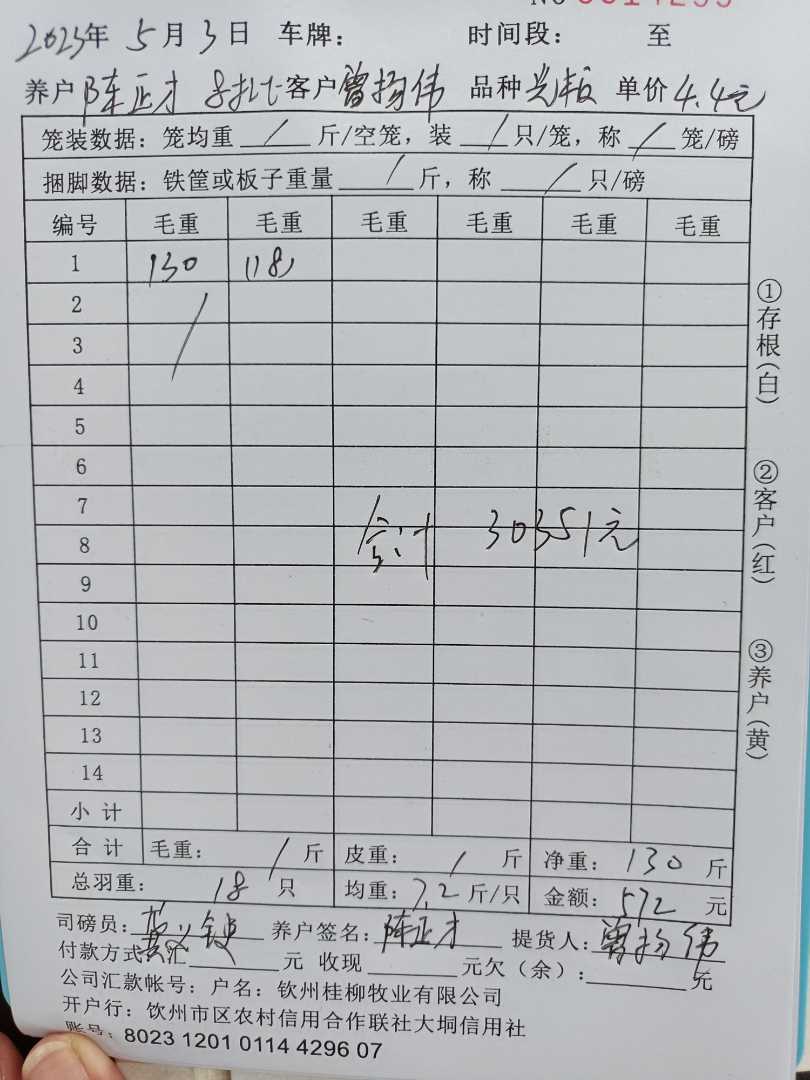 2023年 5月3日 车牌： 时间段： 至
养户 陈正才 客户 曾扬伟 品种 单价 4.4元
笼装数据：笼均重 / 斤/空笼，装 / 只/笼，称 / 笼/磅
捆脚数据：铁筐或板子重量 / 斤，称 / 只/磅
编号 毛重 毛重 毛重 毛重 毛重 毛重
1 130 118
2
3
4
5
6
7
合计 30351元
8
9
10
11
12
13
14
小计
合计 毛重： / 斤 皮重： / 斤 净重：130 斤
总羽重： 18 只 均重：7.2 斤/只 金额：572 元
司磅员： 养户签名：陈正才 提货人：曾扬伟
付款方式 汇 元 收现 元欠（余）： 元
公司汇款帐号：户名：钦州桂柳牧业有限公司
开户行：钦州市区农村信用合作联社大垌信用社
账号：8023 1201 0114 4296 07
①存根（白）
②客户（红）
③养户（黄）